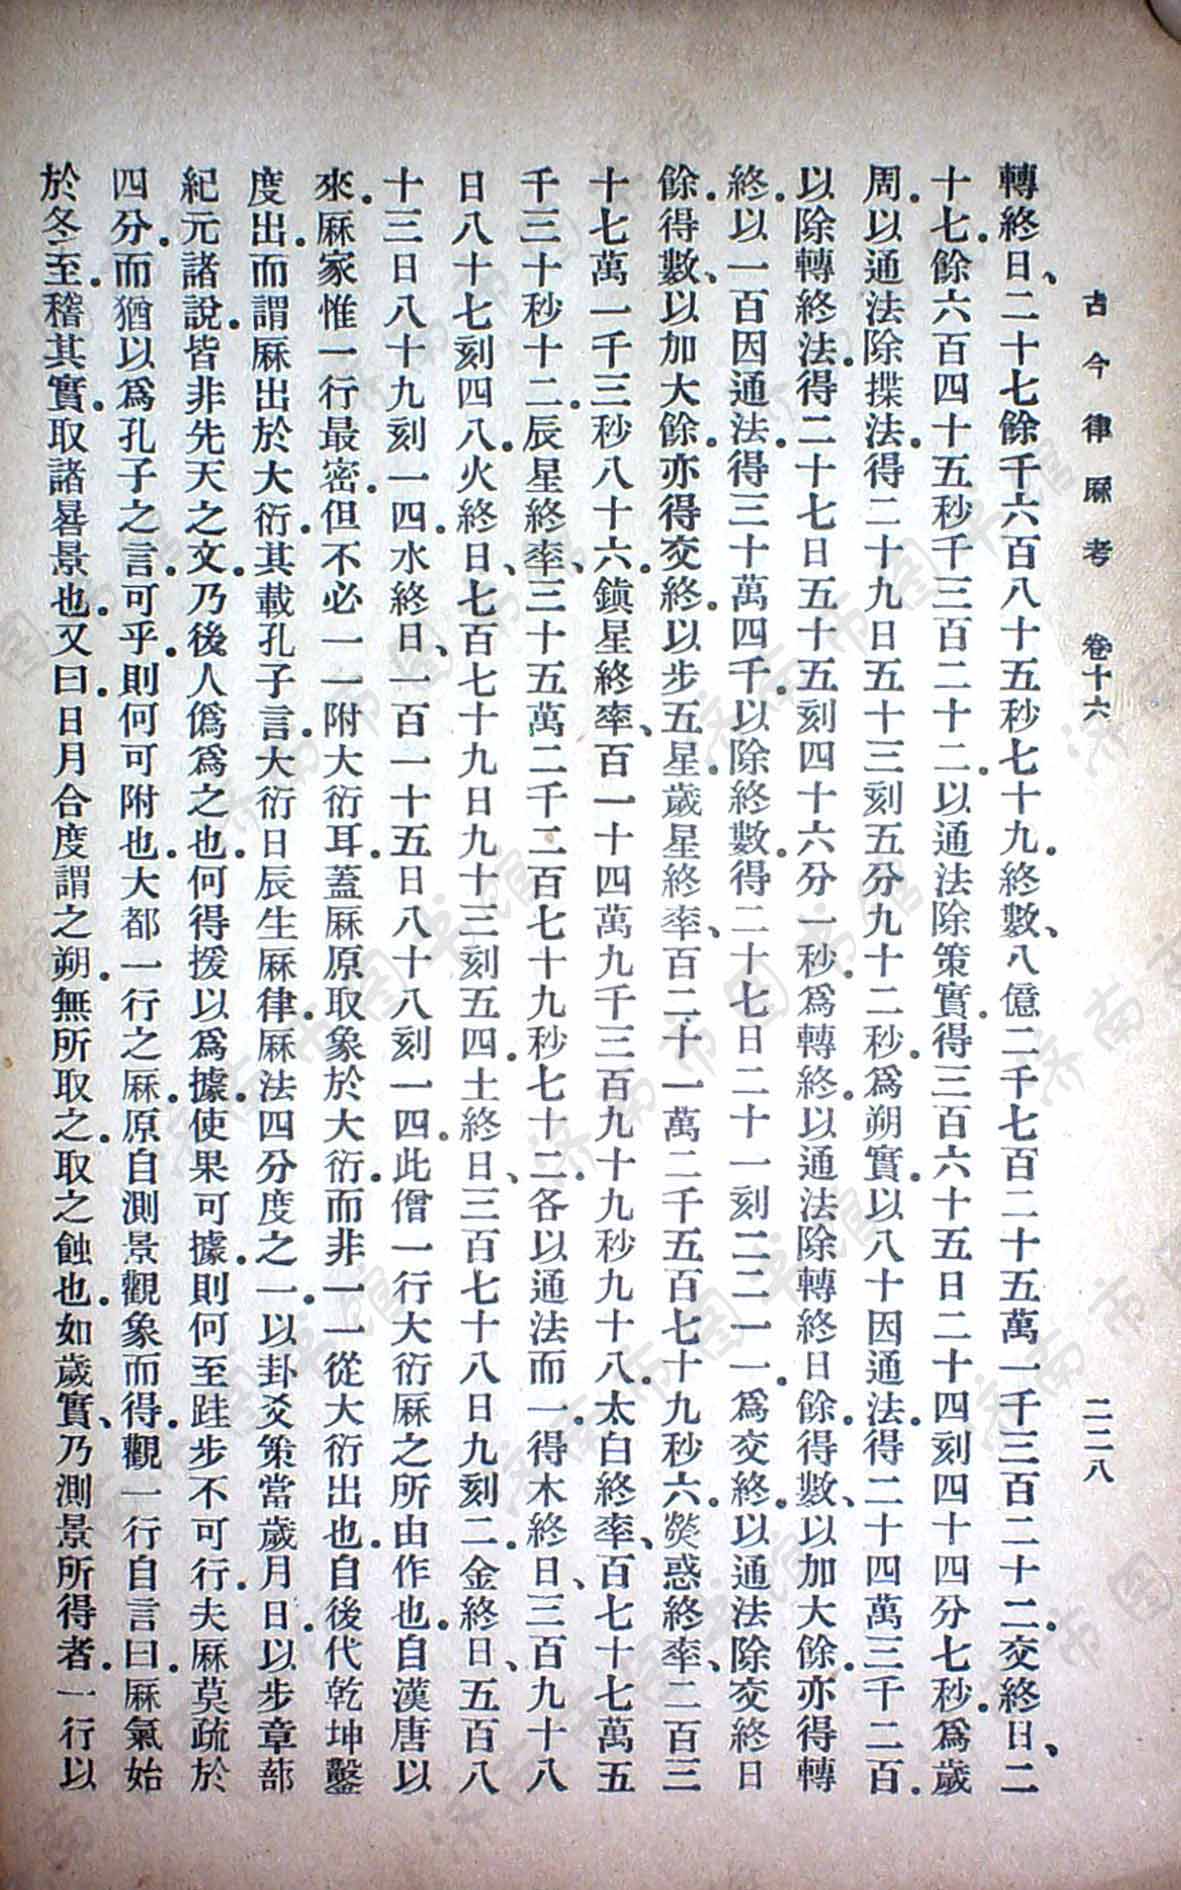 古今律厤考　卷十六　二二八
轉終日、二十七餘千六百八十五秒七十九。終數、八億二千七百二十五萬一千三百二十二。交終日、二
十七。餘六百四十五秒千三百二十二。以通法除策實。得三百六十五日二十四刻四十四分七秒。爲歲
周。以通法除揲法。得二十九日五十三刻五分九十二秒。爲朔實。以八十因通法。得二十四萬三千二百。
以除轉終法。得二十七日五十五刻四十六分一秒。爲轉終。以通法除轉終日餘。得數、以加大餘。亦得轉
終。以一百因通法。得三十萬四千。以除終數。得二十七日二十一刻二二一一。爲交終。以通法除交終日
餘。得數、以加大餘。亦得交終。以步五星。歲星終率、百二十一萬二千五百七十九秒六。熒惑終率、二百三
十七萬一千三秒八十六。鎮星終率、百一十四萬九千三百九十九秒九十八。太白終率、百七十七萬五
千三十秒十二。辰星終率、三十五萬二千二百七十九秒七十二。各以通法而一。得木終日、三百九十八
日八十七刻四八。火終日、七百七十九日九十三刻五四。土終日、三百七十八日九刻二。金終日、五百八
十三日八十九刻一四。水終日、一百一十五日八十八刻一四。此僧一行大衍厤之所由作也。自漢唐以
來。厤家惟一行最密。但不必一一附大衍耳。蓋厤原取象於大衍。而非一一從大衍出也。自後代乾坤鑿
度出。而謂厤出於大衍。其載孔子言。大衍日辰生厤律。厤法四分度之一。以卦爻策當歲月日。以步章蔀
紀元諸說。皆非先天之文。乃後人僞爲之也。何得援以爲據。使果可據。則何至跬步不可行。夫厤莫疏於
四分。而猶以爲孔子之言。可乎。則何可附也。大都一行之厤。原自測景觀象而得。觀一行自言曰。厤氣始
於冬至。稽其實。取諸晷景也。又曰。日月合度謂之朔。無所取之。取之蝕也。如歲實、乃測景所得者。一行以